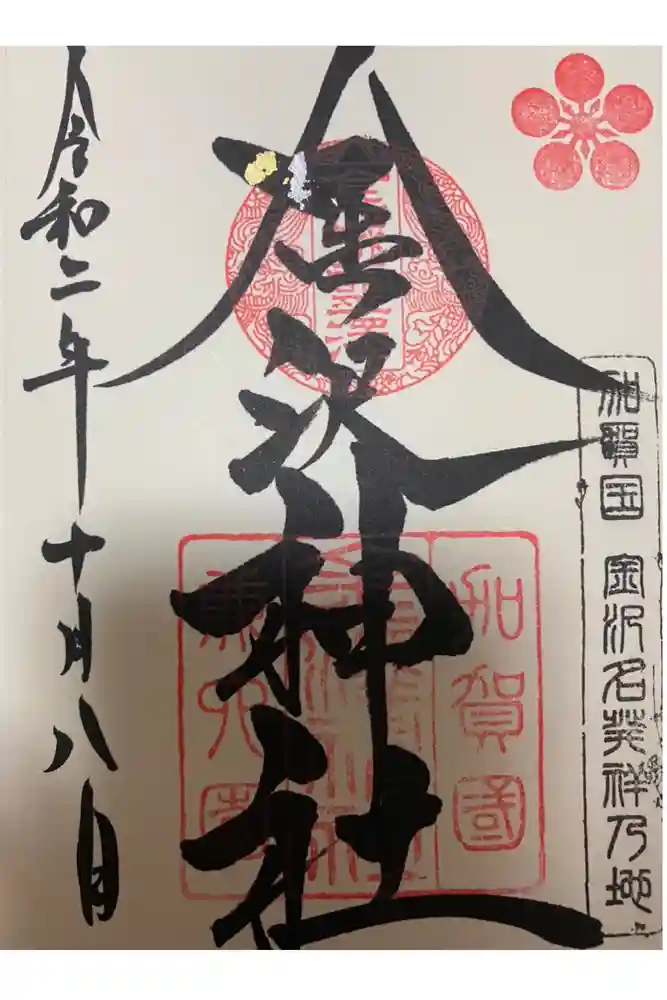 加賀国 金沢名発祥乃地
金沢神社
加賀國
兼六園
令和二年十月八日